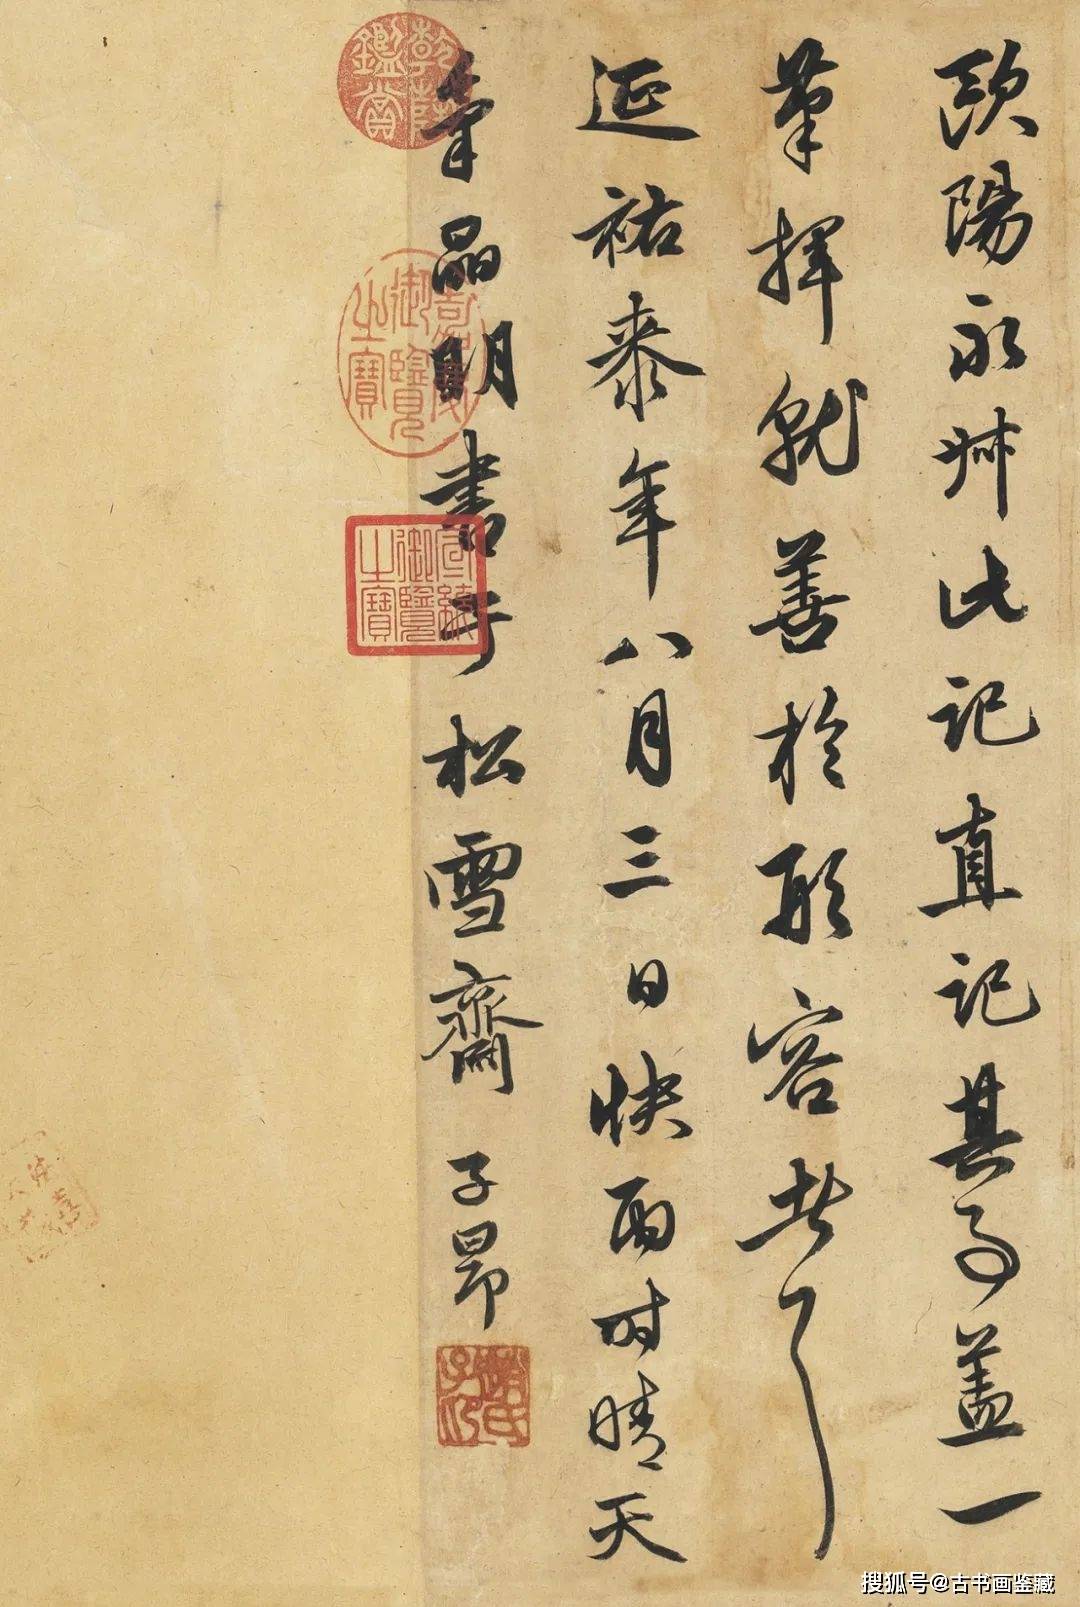 歐陽永叔此記直記其事蓋一
筆揮就善於形容者耳
延祐桼年八月三日快雨时晴天
氣晶明書于松雪齋 子昂
乾隆鑑賞
嘉慶御覽之寶
宣統御覽之寶
趙氏子昂
搜狐号@古书画鉴藏